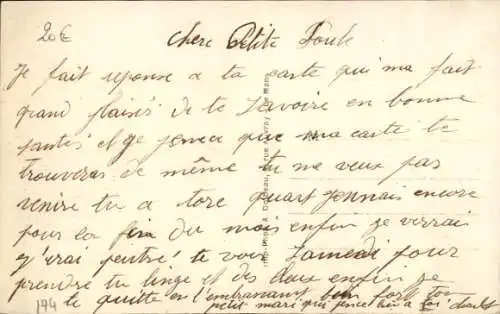 20€
chere Petite Poule
Je fait reponse a ta carte qui ma fait
grand plaisir de te savoire en bonne
santés et je pence que ma carte te
trouveras de même tu ne veux pas
venire tu a tore quart jennais encore
pour la fin du mois enfin je verrai
j'irai peutré te voir Samedi pour
prendre du linge et des enfin je
te quitte en l'embrasant bien fort ton
petit mari qui pence bien a toi
194